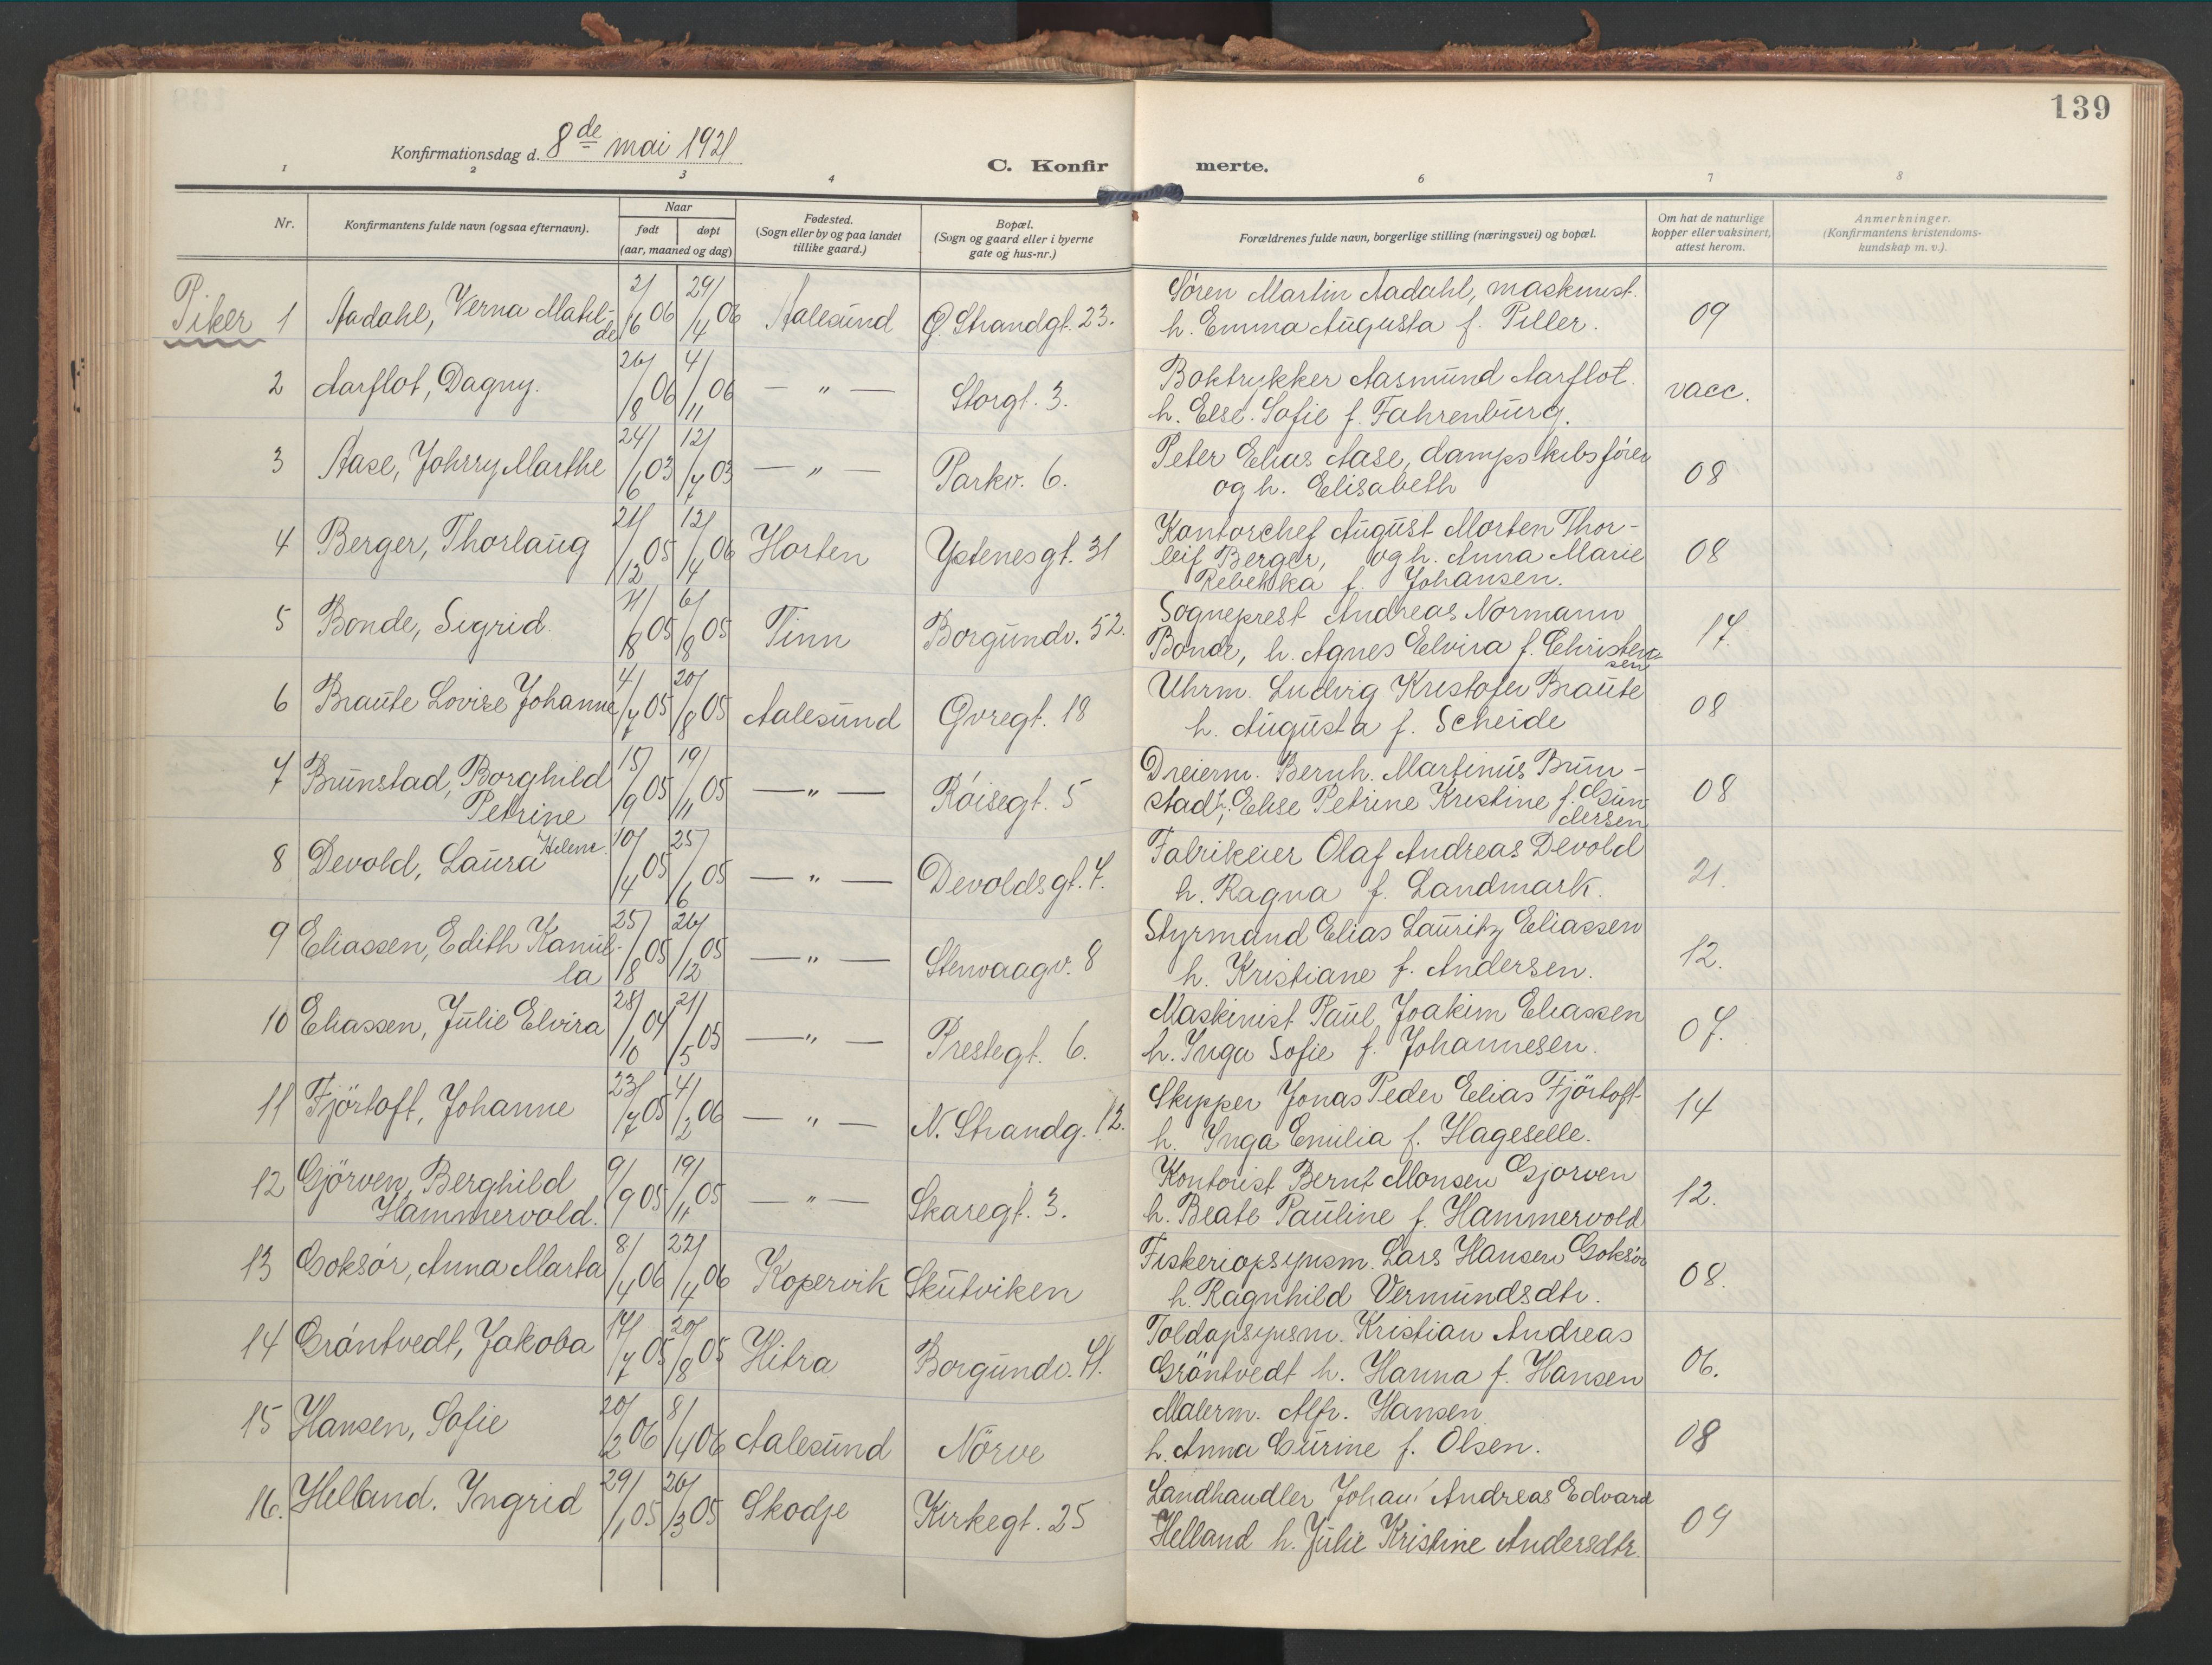 139
Konfirmationsdag d. 8de mai 1921
C. Konfirmerte.
1 2 3 4 6 7 8
Nr. Konfirmantens fulde navn (ogsaa efternavn). Naar født døpt (aar, maaned og dag) Fødested. (Sogn eller by og paa landet tillike gaard.) Bopæl. (Sogn og gaard eller i byerne gate og hus-nr.) Forældrenes fulde navn, borgerlige stilling (næringsvei) og bopæl. Om hat de naturlige kopper eller vaksinert, attest herom. Anmerkninger. (Konfirmantens kristendoms-kundskap m. v.).
Piker
1 Aadahl, Verna Mathil-de 2/6 06 29/4 06 Aalesund Ø. Strandgt. 23. Søren Martin Aadahl, maskinist.
h. Emma Augusta f. Piller. 09
2 Aarflot, Dagny. 26/8 06 4/11 06 — " — Storgt. 3. Boktrykker Aasmund Aarflot.
h. Else Sofie f. Fahrenburg. vacc.
3 Aase, Johrry Marthe 24/6 03 12/7 03 — " — Parkv. 6. Peter Elias Aase, dampskibsfører
og h. Elisabeth 08
4 Berger, Thorlaug 21/12 05 12/4 06 Horten Ystenesgt. 31 Kontorchef August Morten Thor-
leif Berger, og h. Anna Marie
Rebekka f. Johansen. 08
5 Bonde, Sigrid. 6/8 05 Tinn Borgundv. 52. Sogneprest Andreas Normann
Bonde, h. Agnes Elvira f. Christen-
sen 17.
6 Braute Lovise Johanne 4/7 05 20/8 05 Aalesund Øvregt. 18 Uhrm. Ludvig Kristofer Braute
h. Augusta f. Scheide 08
7 Brunstad, Borghild
Petrine 15/9 05 19/11 05 — " — Röisegt. 5 Dreierm. Bernh. Martinus Brun-
stad, h. Elise Petrine Kristine f. Gun-
dersen 08
8 Devold, Laura Helene. 10/4 05 25/6 05 — " — Devoldsgt. 7. Fabrikeier Olaf Andreas Devold
h. Ragna f. Landmark. 21.
9 Eliassen, Edith Kamil-
la 25/8 05 26/12 05 — " — Stenvaagv. 8 Styrmand Elias Lauritz Eliassen
h. Kristiane f. Andersen. 12.
10 Eliassen, Julie Elvira 28/10 04 21/5 05 — " — Prestegt. 6. Maskinist Paul Joakim Eliassen
h. Inga Sofie f. Johannesen. 07.
11 Fjörtoft, Johanne 23/7 05 4/2 06 — " — N. Strandg. 12. Skipper Jonas Peder Elias Fjörtoft
h. Inga Emilia f. Hageselle. 14
12 Gjörven, Berghild
Hammervold. 9/9 05 19/11 05 — " — Skaregt. 3. Kontorist Bernt Monsen Gjörven
h. Beate Pauline f. Hammervold 12.
13 Goksör, Anna Marta 8/4 06 22/4 06 Kopervik Skutviken Fiskeriopsynsm. Lars Hansen Goksör
h. Ragnhild Vermundsdtr. 08.
14 Gröntvedt, Jakoba 17/7 05 20/8 05 Hitra Borgundv. Toldopsynsm. Kristian Andreas
Gröntvedt h. Hanna f. Hansen 06.
15 Hansen, Sofie 20/2 06 8/4 06 Aalesund Nörve Malerm. Alfr. Hansen
h. Anna Gurine f. Olsen. 08
16. Helland. Ingrid 29/1 05 26/3 05 Skodje Kirkegt. 25 Landhandler Johan Andreas Edvard
Helland h. Julie Kristine Andersdtr. 09